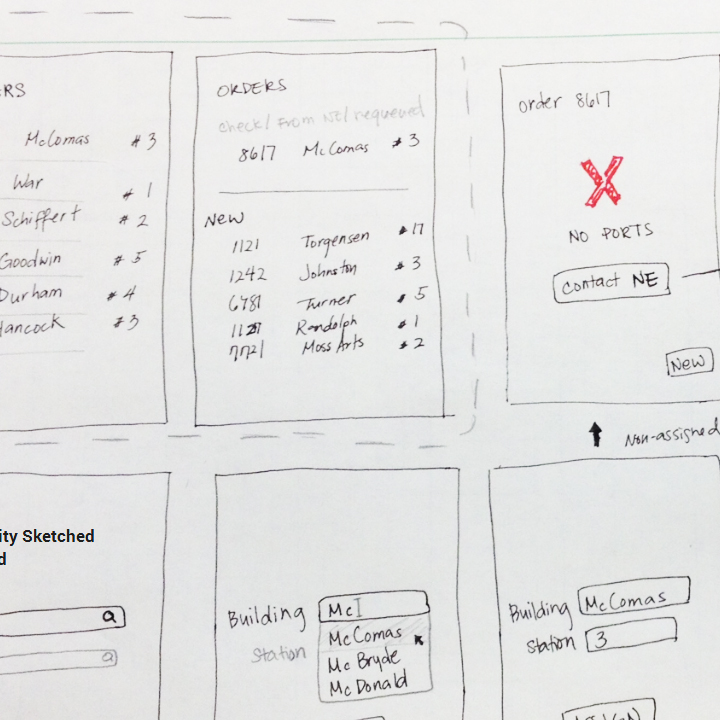 ERS
McComas #3
War #1
Schiffert #2
Goodwin #5
Durham #4
Hancock #3
ORDERS
check/ From NE/ requeued
8617 McComas #3
New
1121 Torgensen #17
1242 Johnston #3
6781 Turner #5
Randolph #1
7721 Moss Arts #2
order 8617
X
NO PORTS
contact NE
New
Non-assigned
ity Sketched
d
Building Mc
Station
McComas
McBryde
McDonald
Building McComas
Station 3